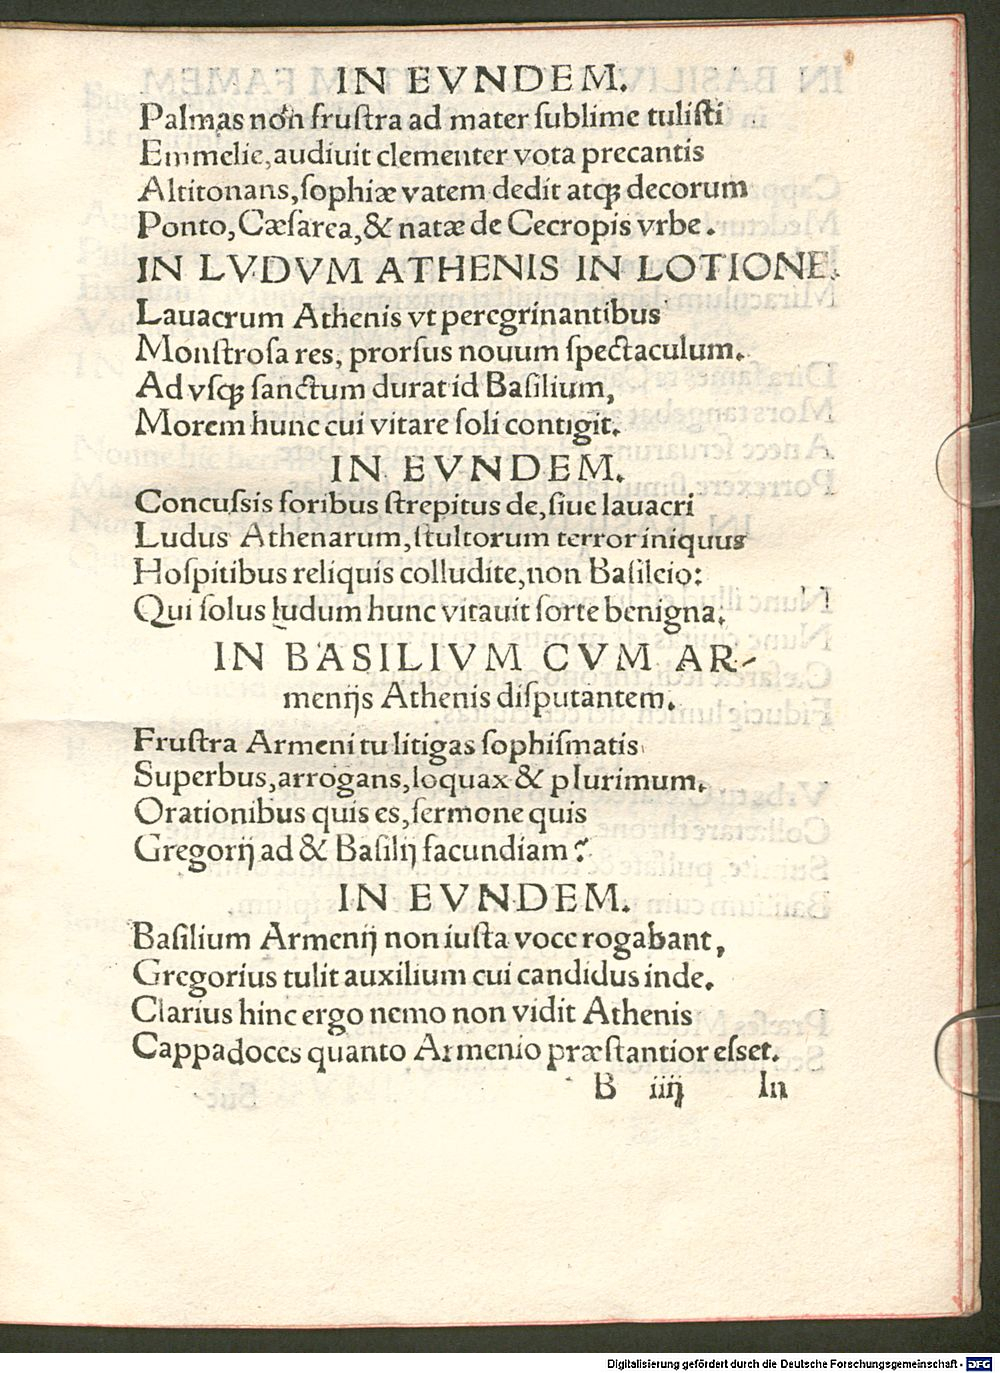 IN EVNDEM.
Palmas non fruſtra ad mater ſublime tuliſti
Emmelie, audiuit clementer vota precantis
Altitonans, ſophiæ vatem dedit atqꝫ decorum
Ponto, Cæſarea, & natæ de Cecropis vrbe.
IN LVDVM ATHENIS IN LOTIONE.
Lauacrum Athenis vt peregrinantibus
Monſtroſa res, prorſus nouum ſpectaculum.
Ad vſqꝫ ſanctum durat id Baſilium,
Morem hunc cui vitare ſoli contigit.
IN EVNDEM.
Concuſsis foribus ſtrepitus de, ſiue lauacri
Ludus Athenarum, ſtultorum terror iniquus
Hoſpitibus reliquis colludite, non Baſileio:
Qui ſolus ludum hunc vitauit ſorte benigna.
IN BASILIVM CVM AR-
menijs Athenis diſputantem.
Fruſtra Armeni tu litigas ſophiſmatis
Superbus, arrogans, loquax & plurimum.
Orationibus quis es, ſermone quis
Gregorij ad & Baſilij facundiam?
IN EVNDEM.
Baſilium Armenij non iuſta voce rogabant,
Gregorius tulit auxilium cui candidus inde.
Clarius hinc ergo nemo non vidit Athenis
Cappadoces quanto Armenio præſtantior eſset.
B iiij In
Digitalisierung gefördert durch die Deutsche Forschungsgemeinschaft - DFG